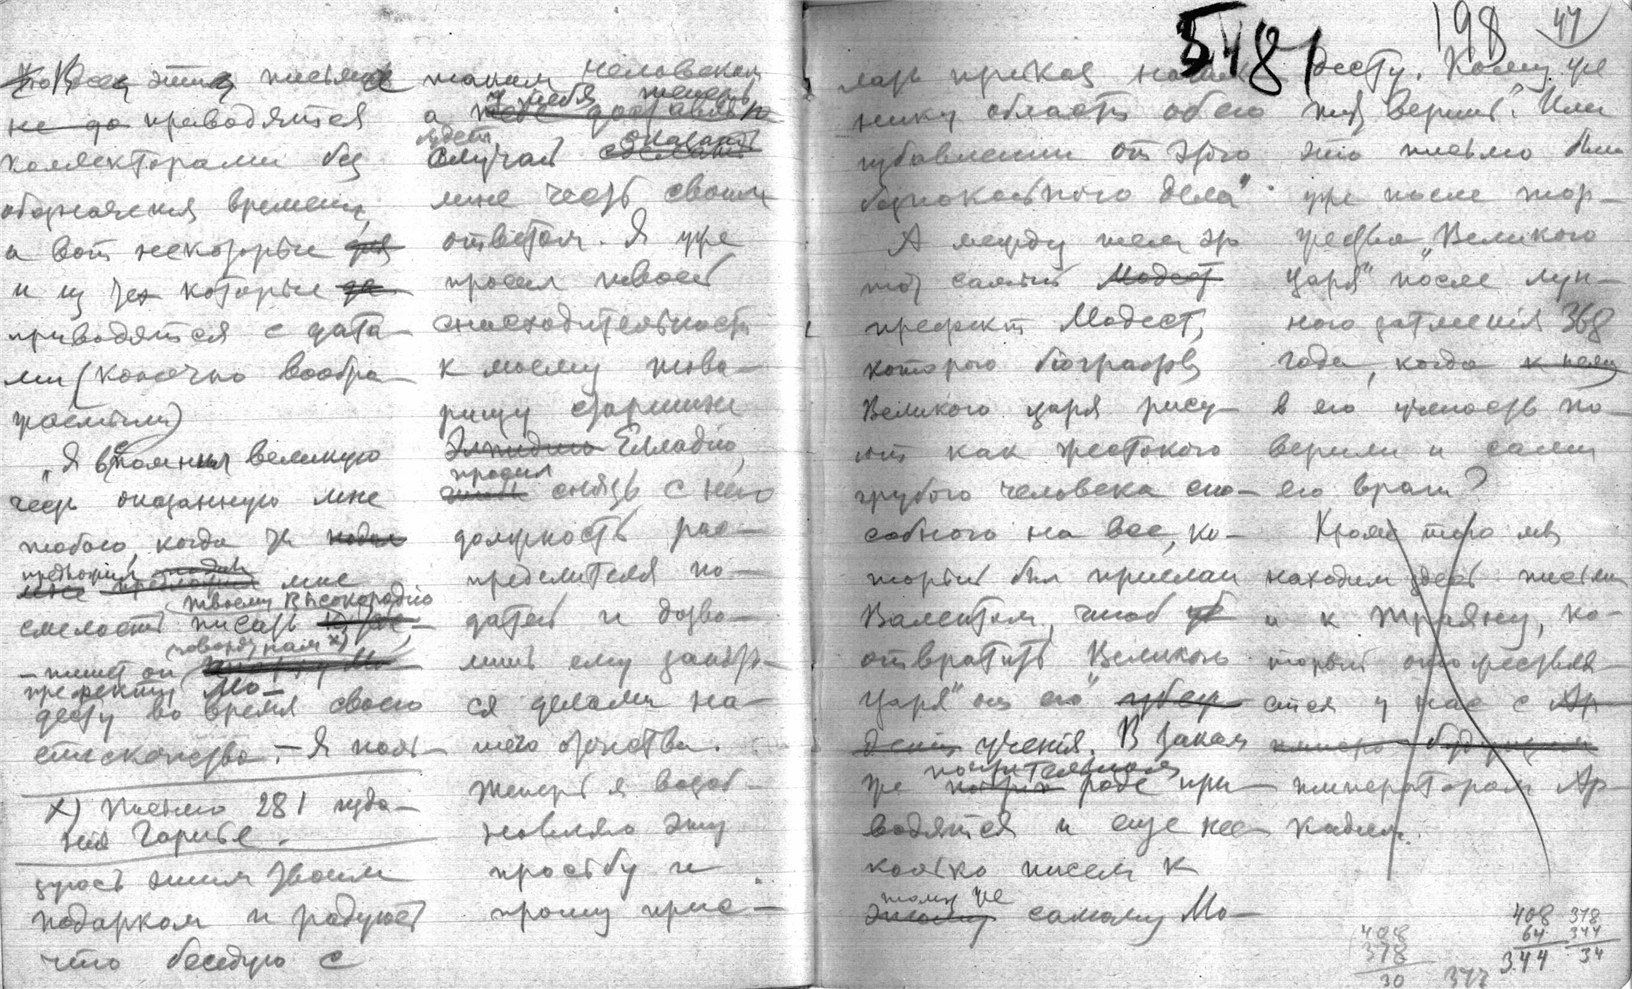 548
198
47
Все эти письма
не до приводятся
коллекторами без
обозначения времени,
а вот некоторые
и из тех которые за-
приводятся с дата-
ми (конечно вообра-
жаемыми)
„Я вспомнил великую
честь оказанную мне
тобою, когда ты подал
мне
смелость писать
твоему высокородию
– пишет он
префекту Мо-
десту во время своего
епископства. – Я поль-
x) Письмо 281 изда-
ния Гарнье.
зуюсь этим твоим
подарком и радуюсь
что беседую с
таким человеком
а у тебя теперь
будет случай оказать
мне честь своим
ответом. Я уже
просил твоей
снисходительности
к моему това-
рищу старшине
Элладию Елладию,
просил снять с него
должность рас-
пределителя по-
датей и дозво-
лить ему занять-
ся делами на-
шего отечества.
Теперь я возоб-
новляю эту
просьбу и
прошу прис-
лать приказ началь
нику области об его
избавлении от этого
беспокойного дела“.
А между тем это
тот самый Модест
префект Модест,
которого биографы
Великого царя рису-
ют как жестокого
грубого человека спо-
собного на все, ко-
торый был прислан
Валентом, чтоб
отвратить „Великого
царя“ от его
учения. В таком
же почтительном роде при-
водятся и еще нес-
колько писем к
тому же
этому самому Мо-
десту. Кому же
тут верить? Или
это письмо было
уже после тор-
жества „Великого
царя“ после лун-
ного затмения 368
года, когда к нему
в его ученость по-
верили и сами
его враги?
Кроме того мы
находим здесь письмы
и к Траяну, ко-
торый отожествля-
ется у нас с Ар-
императором Ар-
кадием.
408
378
30
408
64
344
378
344
34